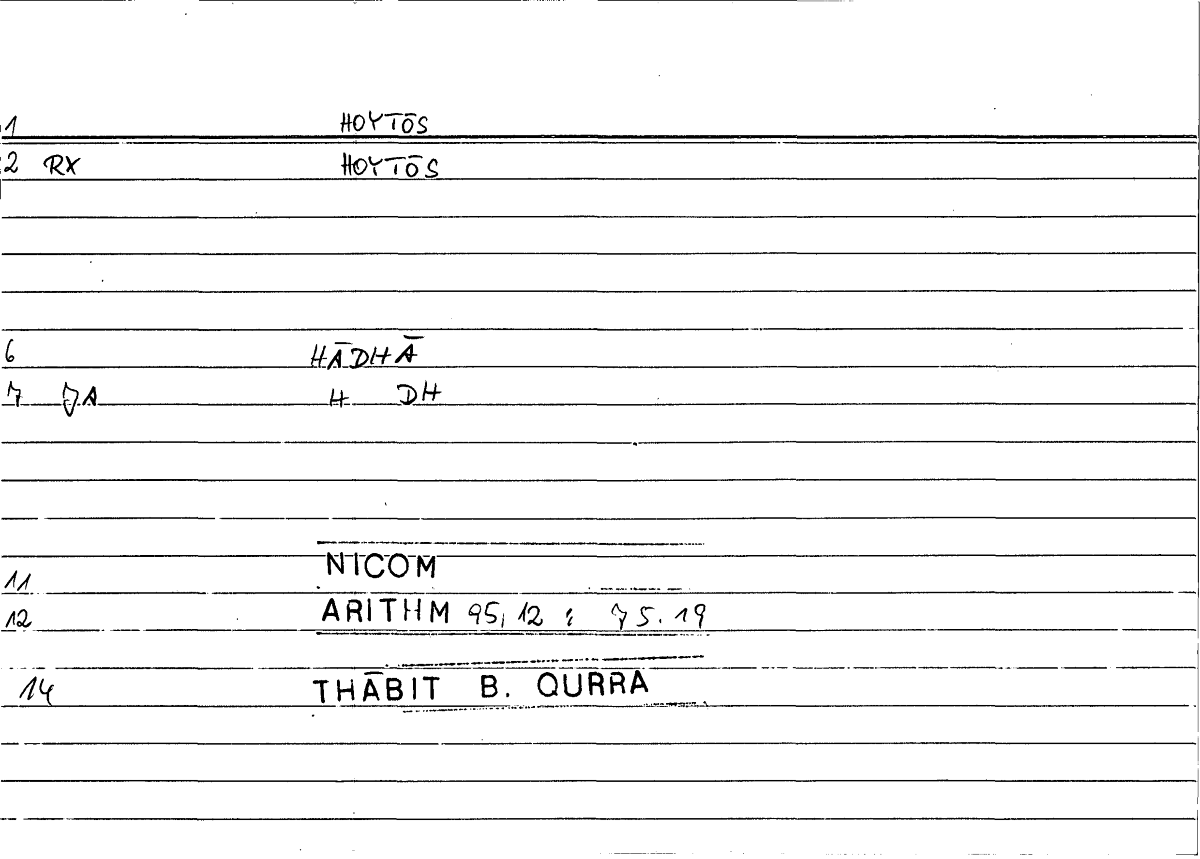 1 HOYTŌS
2 RX HOYTŌS
6 HĀDHĀ
7 JA H DH
11 NICOM
12 ARITHM 95,12 : 75.19
14 THĀBIT B. QURRA